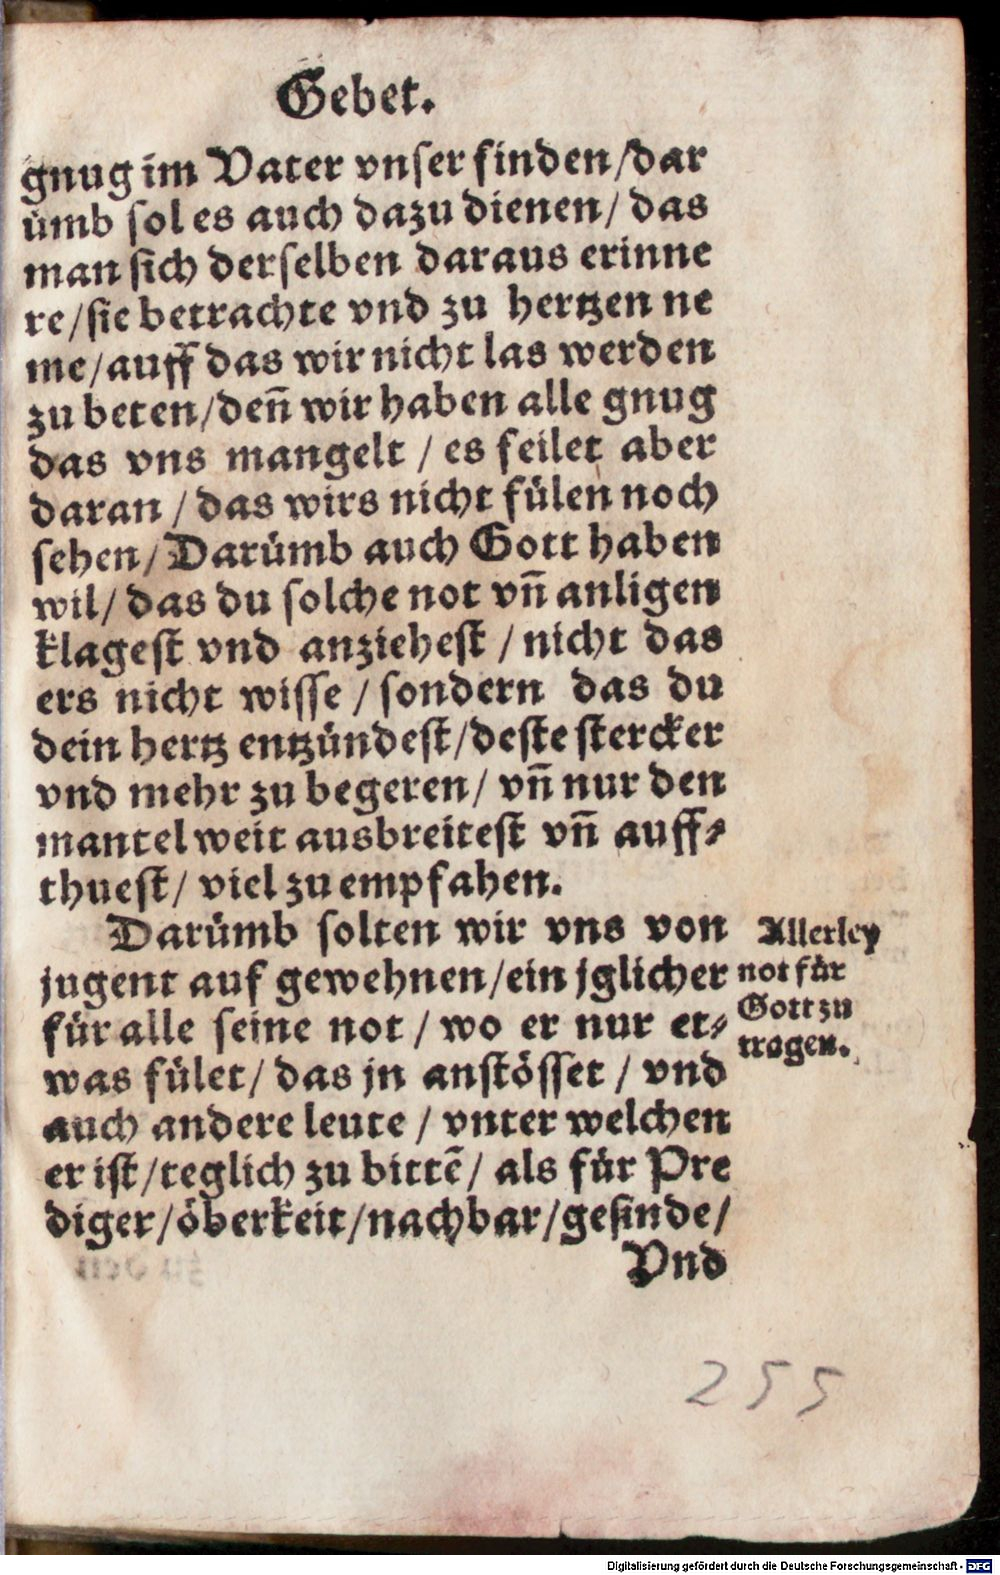 Gebet.
gnug im Vater vnser finden/dar
ümb sol es auch dazu dienen/ das
man sich derselben daraus erinne
re/sie betrachte vnd zu hertzen ne
me/auff das wir nicht las werden
zu beten/deñ wir haben alle gnug
das vns mangelt / es feilet aber
daran / das wirs nicht fülen noch
sehen/ Darümb auch Gott haben
wil/ das du solche not vñ anligen
klagest vnd anziehest / nicht das
ers nicht wisse / sondern das du
dein hertz entzündest/deste stercker
vnd mehr zu begeren/ vñ nur den
mantel weit ausbreitest vñ auff⸗
thuest/ viel zu empfahen.
Darümb solten wir vns von
jugent auf gewehnen/ein jglicher
für alle seine not / wo er nur et⸗
was fület/ das jn anstösset / vnd
auch andere leute / vnter welchen
er ist/teglich zu bittē/ als für Pre
diger/öberkeit/nachbar/gesinde/
Vnd
Allerley
not für
Gott zu
tragen.
255
Digitalisierung gefördert durch die Deutsche Forschungsgemeinschaft - DFG